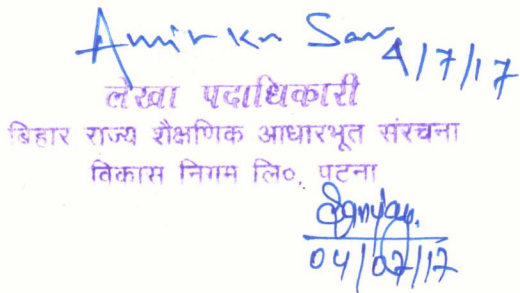 Amir Kr Sar 4/7/17
लेखा पदाधिकारी
बिहार राज्य शैक्षणिक आधारभूत संरचना
विकास निगम लि०, पटना
04/07/17